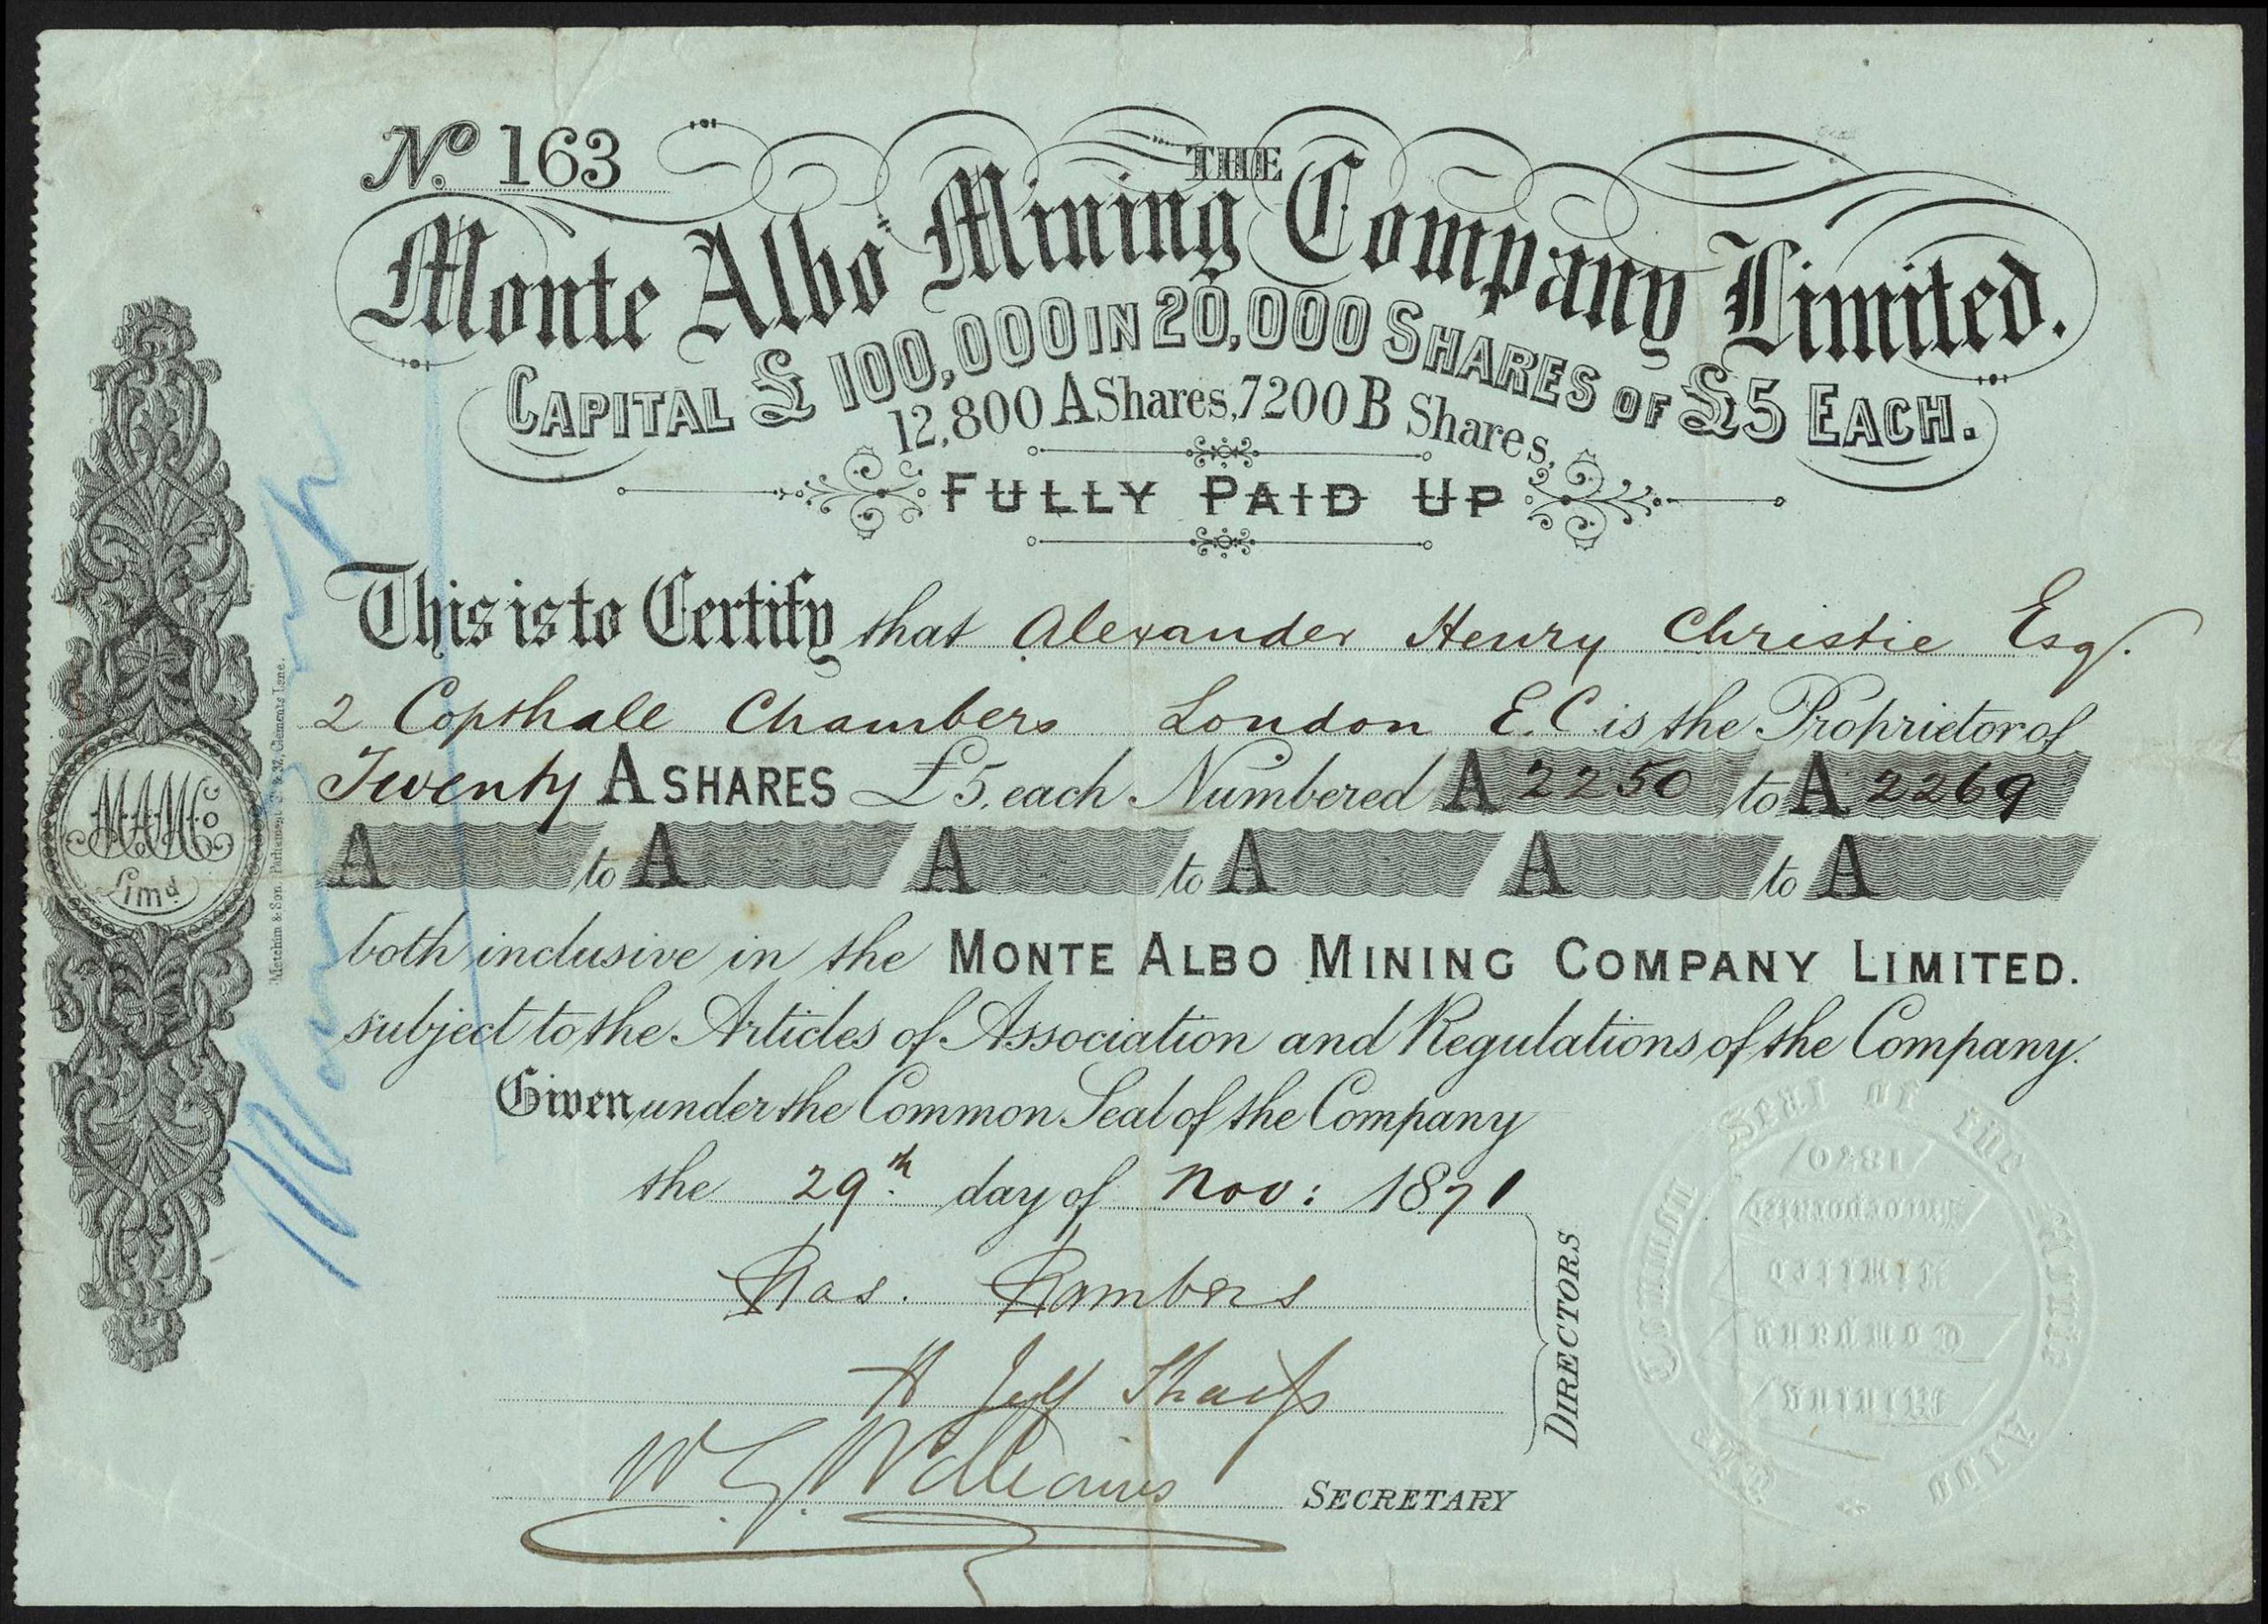 No. 163
THE
Monte Albo Mining Company Limited.
CAPITAL £ 100,000 IN 20,000 SHARES OF £5 EACH.
12,800 A Shares, 7200 B Shares,
FULLY PAID UP
This is to Certify that Alexander Henry Christie Esq.
2 Copthall Chambers London E.C is the Proprietor of
Twenty A SHARES £5. each Numbered A 2250 to A 2269
A to A A to A A to A
both inclusive in the MONTE ALBO MINING COMPANY LIMITED.
subject to the Articles of Association and Regulations of the Company.
Given under the Common Seal of the Company
the 29th day of Nov: 1871
Chas. Chambers
Sharp
W G Williams
DIRECTORS
SECRETARY
MAMCo
Limd
Metchim & Son, Parliament St & 32, Clements Lane.
The Common Seal of the Monte Albo
Mining
Company
Limited
Incorporated
1870